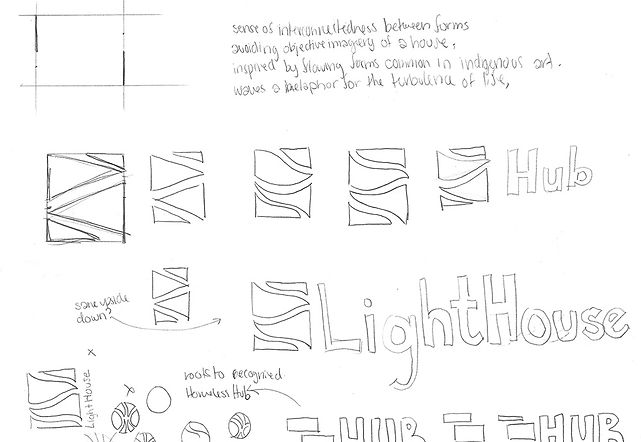 sense of interconnectedness between forms
avoiding objective imagery of a house,
inspired by flowing forms common in indigenous art.
waves a metaphor for the turbulence of life,
Hub
same upside
down?
LightHouse
LightHouse
roots to recognised
Homeless Hub
HUB
HUB